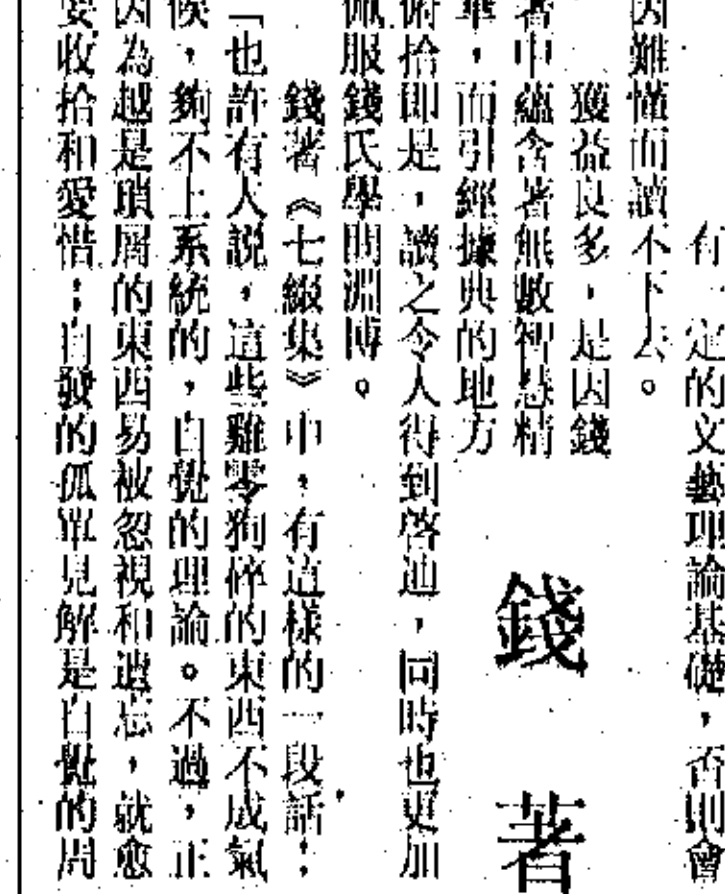 有一定的文藝理論基礎，否則會
因難懂而讀不下去。
獲益良多，是因錢
著中蘊含著無數智慧精
華，而引經據典的地方
俯拾即是，讀之令人得到啓迪，同時也更加
佩服錢氏學問淵博。
錢著《七綴集》中，有這樣的一段話：
「也許有人説，這些雞零狗碎的東西不成氣
候，夠不上系統的，自覺的理論。不過，正
因為越是瑣屑的東西易被忽視和遺忘，就愈
要收拾和愛惜；自發的孤單見解是自覺的周
錢著